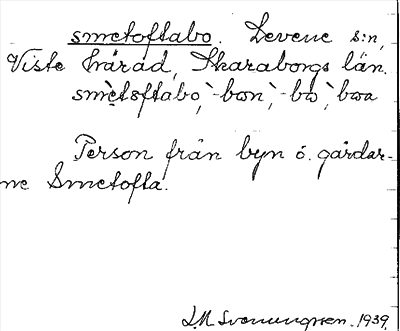 smetoftabo. Levene s:n,
Viste härad, Skaraborgs län.
smètoftabo, -bon, -bo, boa
Person från byn o. gårdar-
ne Smetofta.
J.M. Svenungsson. 1939.